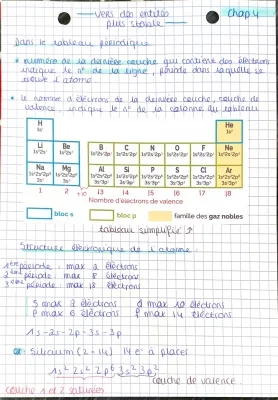 Vers des entités
plus stable
Chap 4
Dans le tableau périodique
• numéro de la dernière couche qui contient des électrons
indique le n° de la ligne, période dans laquelle se
trouve l'atome.
• le nombre d'électrons de la dernière couche, couche de
valence, indique le n° de la colonne du tableau
H He
1s¹ 1s²
Li Be B C N O F Ne
1s²2s¹ 1s²2s² 1s²2s²2p¹ 1s²2s²2p² 1s²2s²2p³ 1s²2s²2p⁴ 1s²2s²2p⁵ 1s²2s²2p⁶
Na Mg Al Si P S Cl Ar
1s²2s²2p⁶ 1s²2s²2p⁶ 1s²2s²2p⁶ 1s²2s²2p⁶ 1s²2s²2p⁶ 1s²2s²2p⁶ 1s²2s²2p⁶ 1s²2s²2p⁶
3s¹ 3s² 3s²3p¹ 3s²3p² 3s²3p³ 3s²3p⁴ 3s²3p⁵ 3s²3p⁶
1 2 +10 13 14 15 16 17 18
Nombre d'électrons de valence
bloc s bloc p famille des gaz nobles
tableau simplifié ↑
Structure électronique de l'atome :
1ère période : max 2 électrons
2ème période : max 8 électrons
3ème période : max 18 électrons
S max 2 électrons d max 10 électrons
P max 6 électrons f max 14 électrons
1s - 2s - 2p - 3s - 3p
ex: Silicium (Z = 14) 14 e⁻ à placer
1s² 2s² 2p⁶ 3s² 3p²
couche de valence
couche 1 et 2 saturées